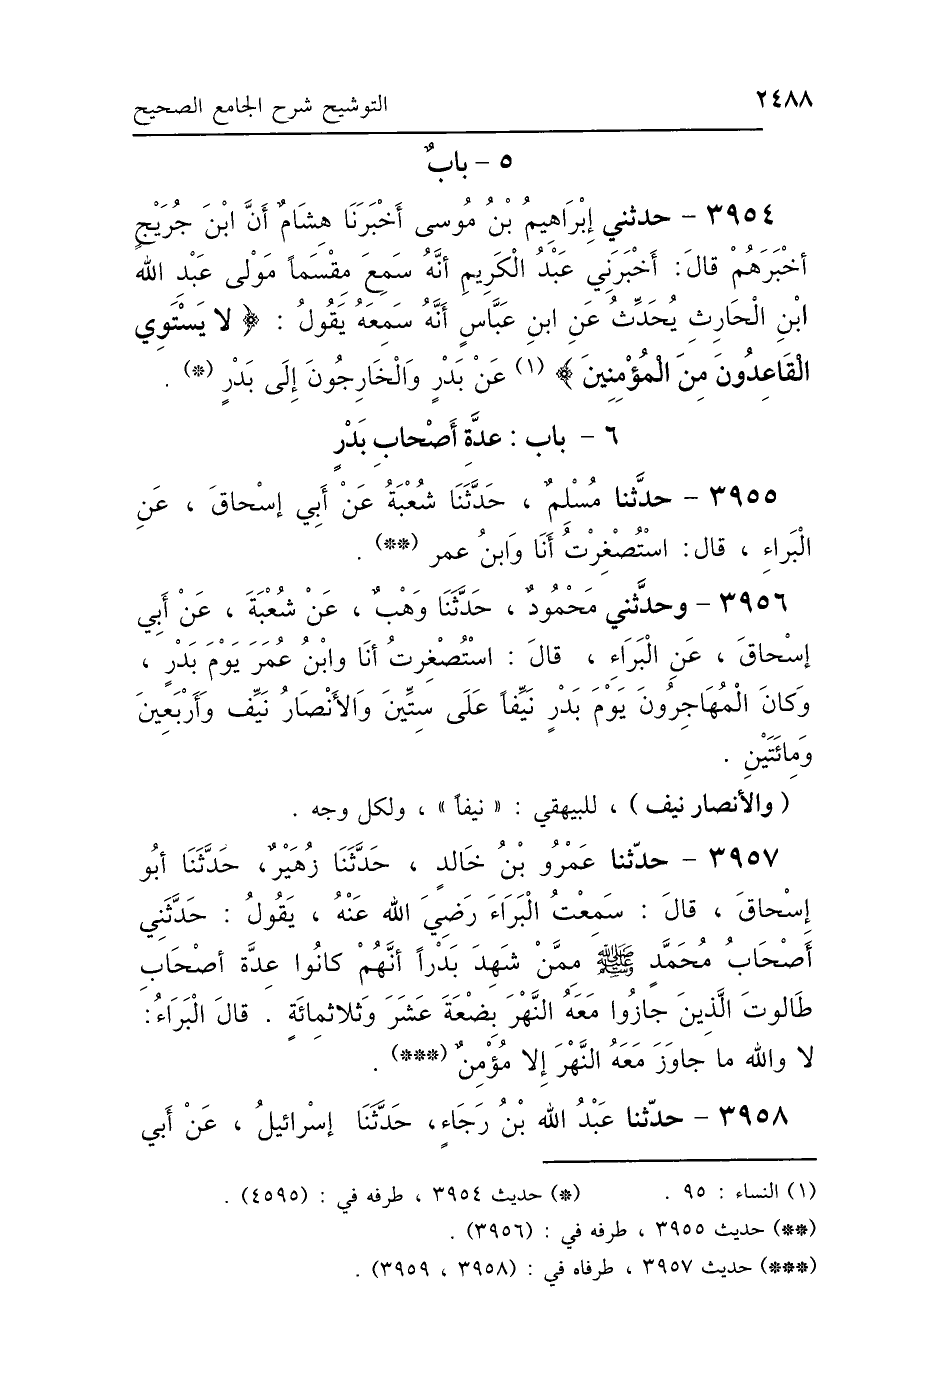 ٢٤٨٨ التوشيح شرح الجامع الصحيح
٥ - بابٌ
٣٩٥٤ - حدثني إِبْرَاهِيمُ بْنُ مُوسى أَخْبَرَنَا هِشَامٌ أَنَّ ابْنَ جُرَيْجٍ
أَخْبَرَهُمْ قالَ: أَخْبَرَنِي عَبْدُ الْكَرِيمِ أَنَّهُ سَمِعَ مِقْسَماً مَوْلى عَبْدِ الله
ابْنِ الْحَارِثِ يُحَدِّثُ عَنِ ابنِ عَبَّاسٍ أَنَّهُ سَمِعَهُ يَقُولُ : ﴿ لا يَسْتَوِي
الْقَاعِدُونَ مِنَ الْمُؤْمِنِينَ ﴾ (١) عَنْ بَدْرٍ وَالْخَارِجُونَ إِلَى بَدْرٍ (*) .
٦ - باب : عدَّة أَصْحابِ بَدْرٍ
٣٩٥٥ - حدَّثنا مُسْلِمٌ ، حَدَّثَنَا شُعْبَةُ عَنْ أَبِي إسْحاقَ ، عَنِ
الْبَراءِ ، قال: اسْتُصْغِرْتُ أَنَا وَابنُ عمر (**) .
٣٩٥٦ - وحدَّثني مَحْمُودٌ ، حَدَّثَنَا وَهْبٌ ، عَنْ شُعْبَةَ ، عَنْ أَبِي
إسْحاقَ ، عَنِ الْبَرَاءِ ، قالَ : اسْتُصْغِرتُ أنَا وابْنُ عمَرَ يَوْمَ بَدْرٍ ،
وَكانَ الْمُهَاجِرُونَ يَوْمَ بَدْرٍ نَيِّفاً عَلَى ستِّينَ وَالأَنْصَارُ نَيِّف وَأَرْبَعِينَ
وَمِائَتَيْنِ .
( والأنصار نيف ) ، للبيهقي : « نيفاً » ، ولكل وجه .
٣٩٥٧ - حدّثنا عَمْرُو بْنُ خَالدٍ ، حَدَّثَنَا زُهَيْرٌ، حَدَّثَنَا أبُو
إسْحاقَ ، قالَ : سَمِعْتُ الْبَرَاءَ رَضِيَ الله عَنْهُ ، يَقُولُ : حَدَّثَنِي
أَصْحَابُ مُحَمَّدٍ ﷺ مِمَّنْ شَهِدَ بَدْراً أنَّهُمْ كانُوا عدةَ أصْحابِ
طَالوتَ الَّذِينَ جازُوا مَعَهُ النَّهْرَ بِضْعَةَ عَشَرَ وَثلاثمائَةٍ . قالَ الْبَرَاءُ:
لا والله ما جاوَزَ مَعَهُ النَّهْرَ إلا مُؤْمِنٌ (***) .
٣٩٥٨ - حدّثنا عَبْدُ الله بْنُ رَجَاءٍ، حَدَّثَنَا إسْرائيلُ ، عَنْ أَبي
(١) النساء : ٩٥ . (*) حديث ٣٩٥٤ ، طرفه في : (٤٥٩٥) .
(**) حديث ٣٩٥٥ ، طرفه في : (٣٩٥٦) .
(***) حديث ٣٩٥٧ ، طرفاه في : (٣٩٥٨ ، ٣٩٥٩) .